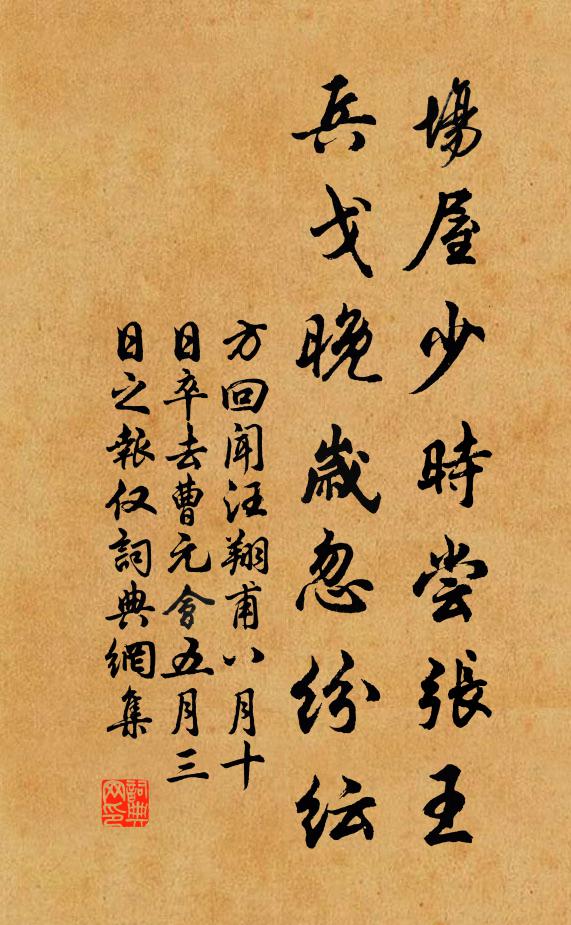 場屋少時嘗張王
兵戈晚歲忽紛紜
方回聞汪翔甫八月十
日卒去曹元會五月三
日之報仅詞典網集
詞典网印